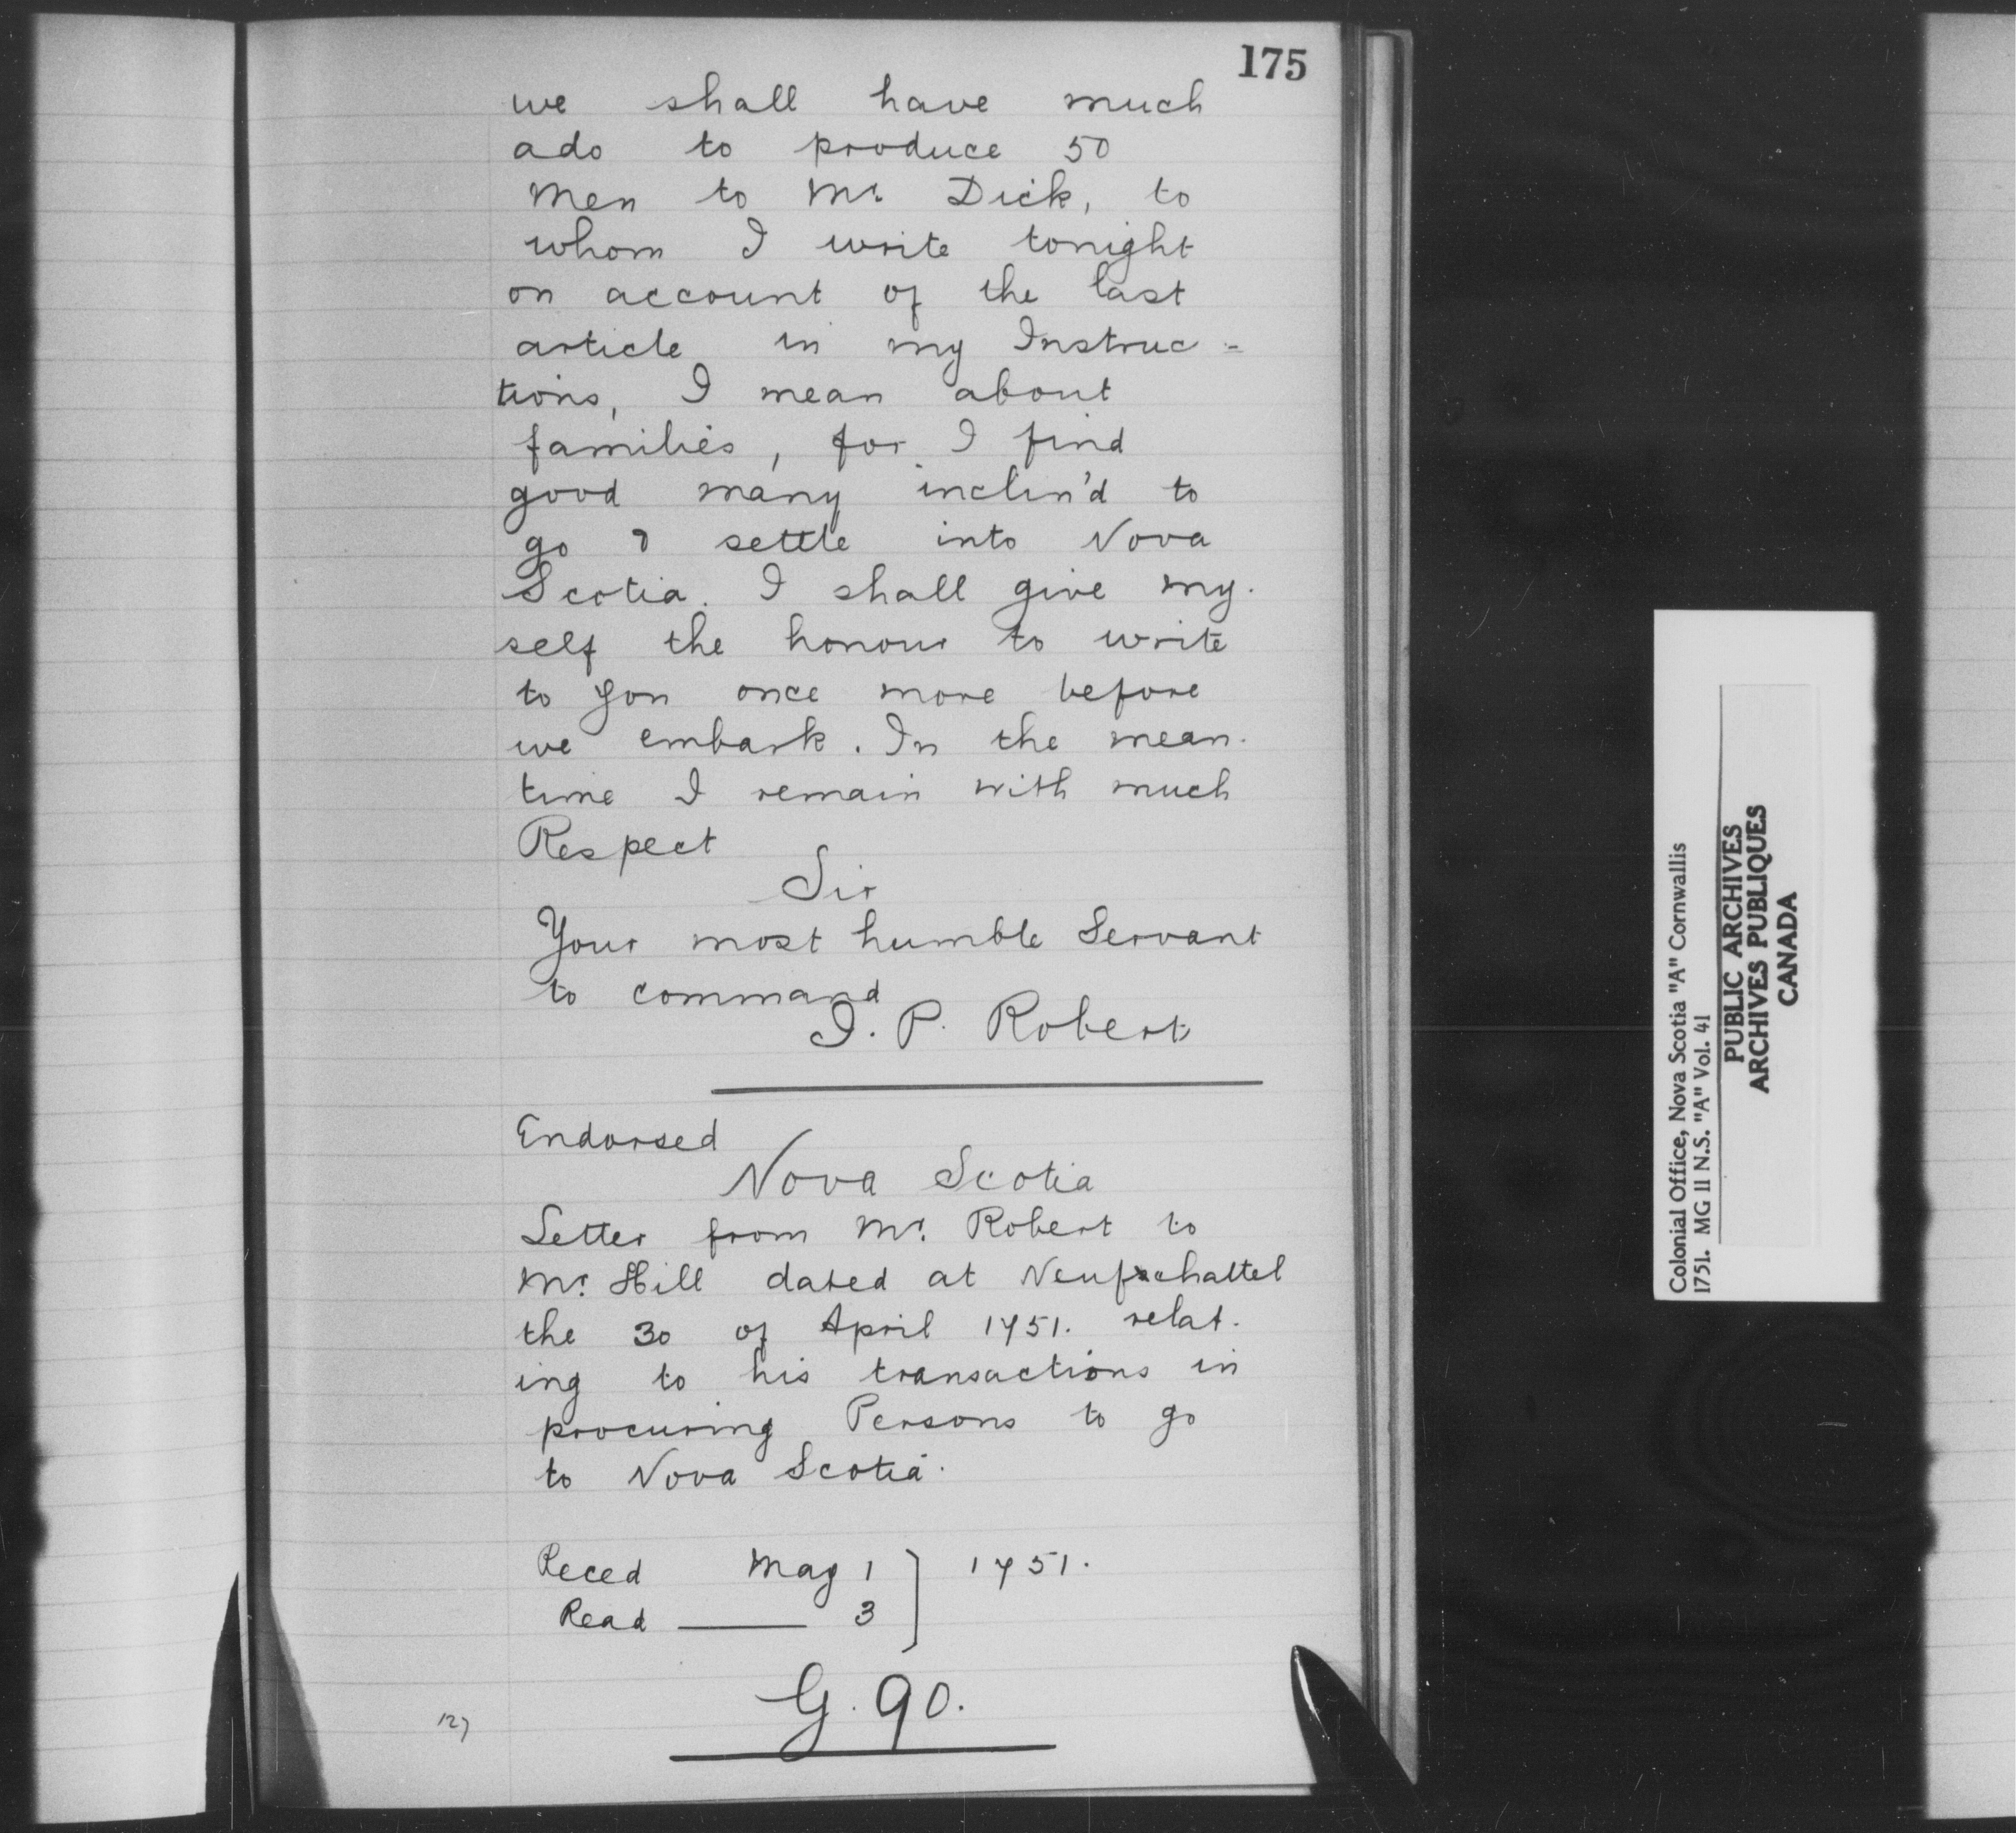 175
we shall have much
ado to produce 50
Men to Mr. Dick, to
whom I write tonight
on account of the last
article in my Instruc-
tions, I mean about
families, for I find
good many inclin'd to
go & settle into Nova
Scotia. I shall give my-
self the honour to write
to you once more before
we embark. In the mean-
time I remain with much
Respect
Sir
Your most humble Servant
to command
J. P. Robert
Endorsed
Nova Scotia
Letter from Mr. Robert to
Mr. Hill dated at Neufchattel
the 30 of April 1751. relat-
ing to his transactions in
procuring Persons to go
to Nova Scotia.
Reced May 1 } 1751.
Read —— 3
G. 90.
127
Colonial Office, Nova Scotia "A" Cornwallis
1751. MG 11 N.S. "A" Vol. 41
PUBLIC ARCHIVES
ARCHIVES PUBLIQUES
CANADA